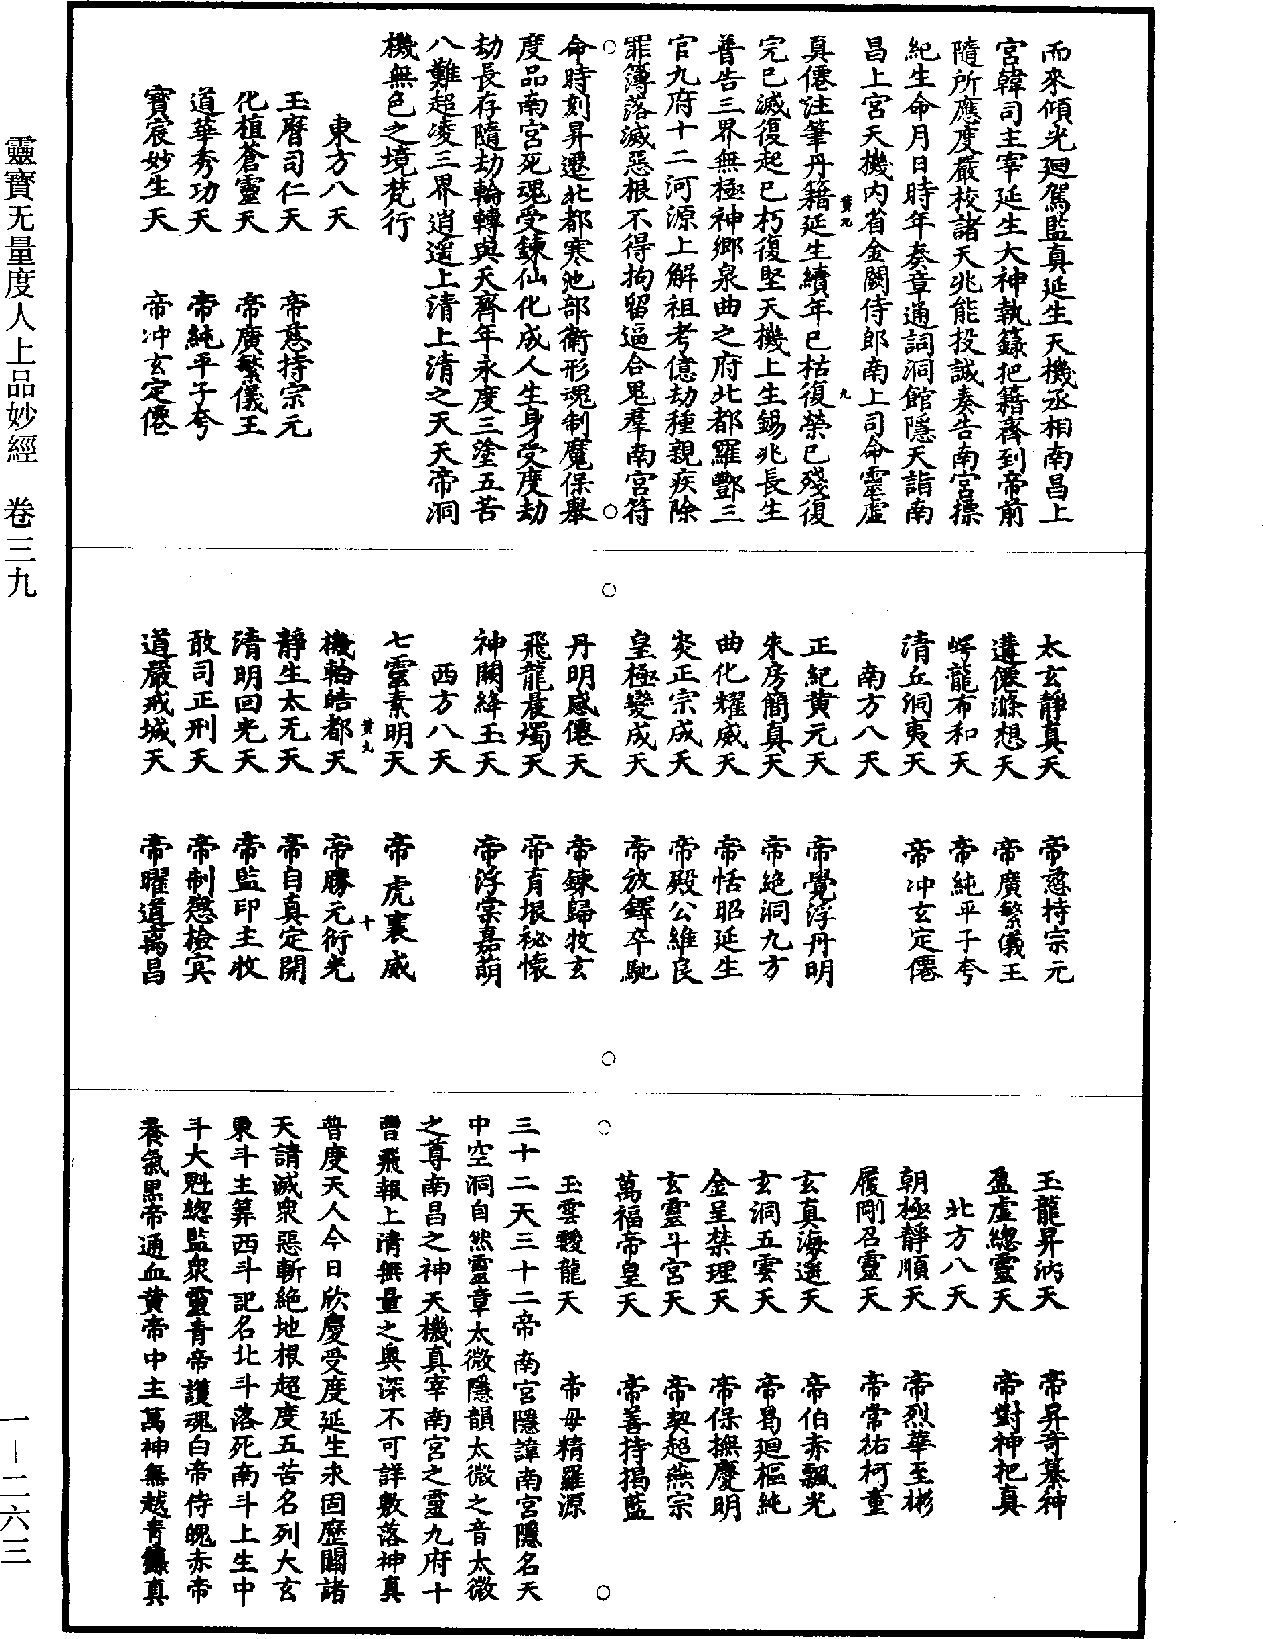 而來傾光廻駕監真延生天機丞相南昌上
宮韓司主宰延生大神執籙把籍齊到帝前
隨所應度嚴校諸天兆能投誠奏告南宮摽
紀生命月日時年奏章通詞洞館隱天詣南
昌上宮天機內省金闕侍郎南上司命靈虛
黃九 九
真僊注筆丹籍延生續年已枯復榮已殘復
完已滅復起已朽復堅天機上生錫兆長生
普告三界無極神鄉泉曲之府北都羅酆三
官九府十二河源上解祖考億劫種親疾除
罪簿落滅惡根不得拘留逼合鬼羣南宮符
命時刻昇遷北都寒池部衛形魂制魔保舉
度品南宮死魂受鍊仙化成人生身受度劫
劫長存隨劫輪轉與天齊年永度三塗五苦
八難超凌三界逍遥上清上清之天天帝洞
機無色之境梵行
東方八天
玉曆司仁天 帝慈持宗元
化植蒼靈天 帝廣繁儀王
道華秀功天 帝純平子夸
寶宸妙生天 帝冲玄定僊
太玄靜真天 帝慈持宗元
遺僊滌想天 帝廣繁儀王
蜉龍布和天 帝純平子夸
清丘洞夷天 帝冲玄定僊
南方八天
正紀黃元天 帝覺浮丹明
朱房簡真天 帝絶洞九方
曲化耀威天 帝恬昭延生
炎正宗成天 帝殿公維良
皇極變成天 帝放鐸卒馳
丹明感僊天 帝鍊歸牧玄
飛龍晨燭天 帝育垠祕懷
神闕絳玉天 帝浮棠嘉萌
西方八天
七靈素明天 帝虎裏威
黃九 十
機輪皓都天 帝勝元衍光
靜生太无天 帝自真定開
清明回光天 帝監印主牧
敢司正刑天 帝制愆檢㝠
道嚴戒城天 帝曜道萬昌
玉龍昇泑天 帝昇奇綦神
盈虛總靈天 帝對神把真
北方八天
朝極靜順天 帝烈華至彬
履剛召靈天 帝常祐柯童
玄真海遥天 帝伯赤飄光
玄洞五雲天 帝曷廻樞純
金呈禁理天 帝保撫慶明
玄靈斗宮天 帝契超燕宗
萬福帝皇天 帝善持揭藍
玉雲䮕龍天 帝毋精羅源
三十二天三十二帝南宮隱諱南宮隱名天
中空洞自然靈章太微隱韻太微之音太微
之尊南昌之神天機真宰南宮之靈九府十
曹飛報上清無量之奧深不可詳敷落神真
普度天人今日欣慶受度延生永固歷關諸
天請滅衆惡斬絶地根超度五苦名列大玄
東斗主筭西斗記名北斗落死南斗上生中
斗大魁總監衆靈青帝護魂白帝侍魄赤帝
養氣黑帝通血黃帝中主萬神無越青鎮真
靈寶无量度人上品妙經 卷三九
一—二六三